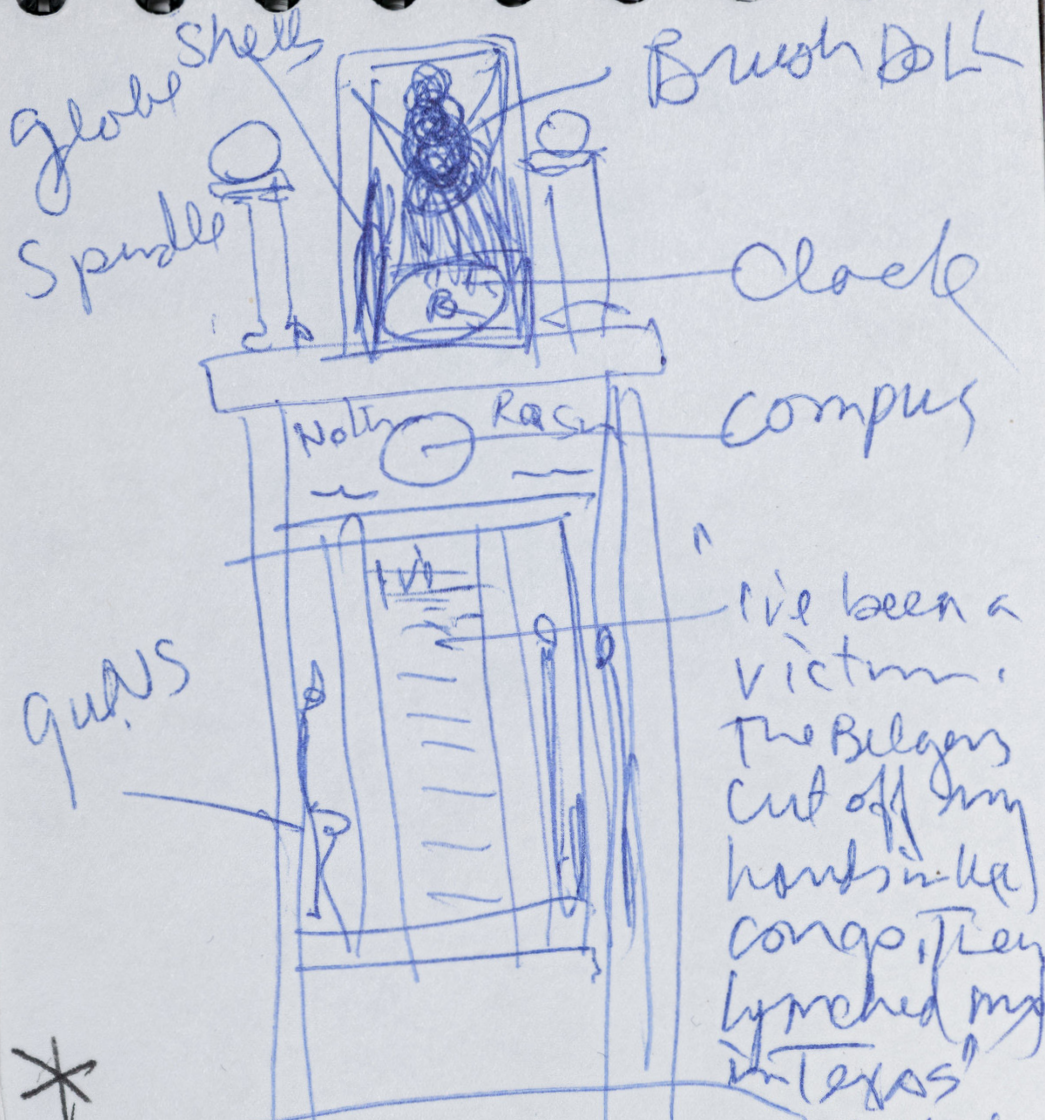 Shells
Brush Doll
globe
Spindle
Clock
compus
guns
"
I've been a
victim.
The Belgens
cut off my
hands in the
congo, They
lynched my
in Texas"